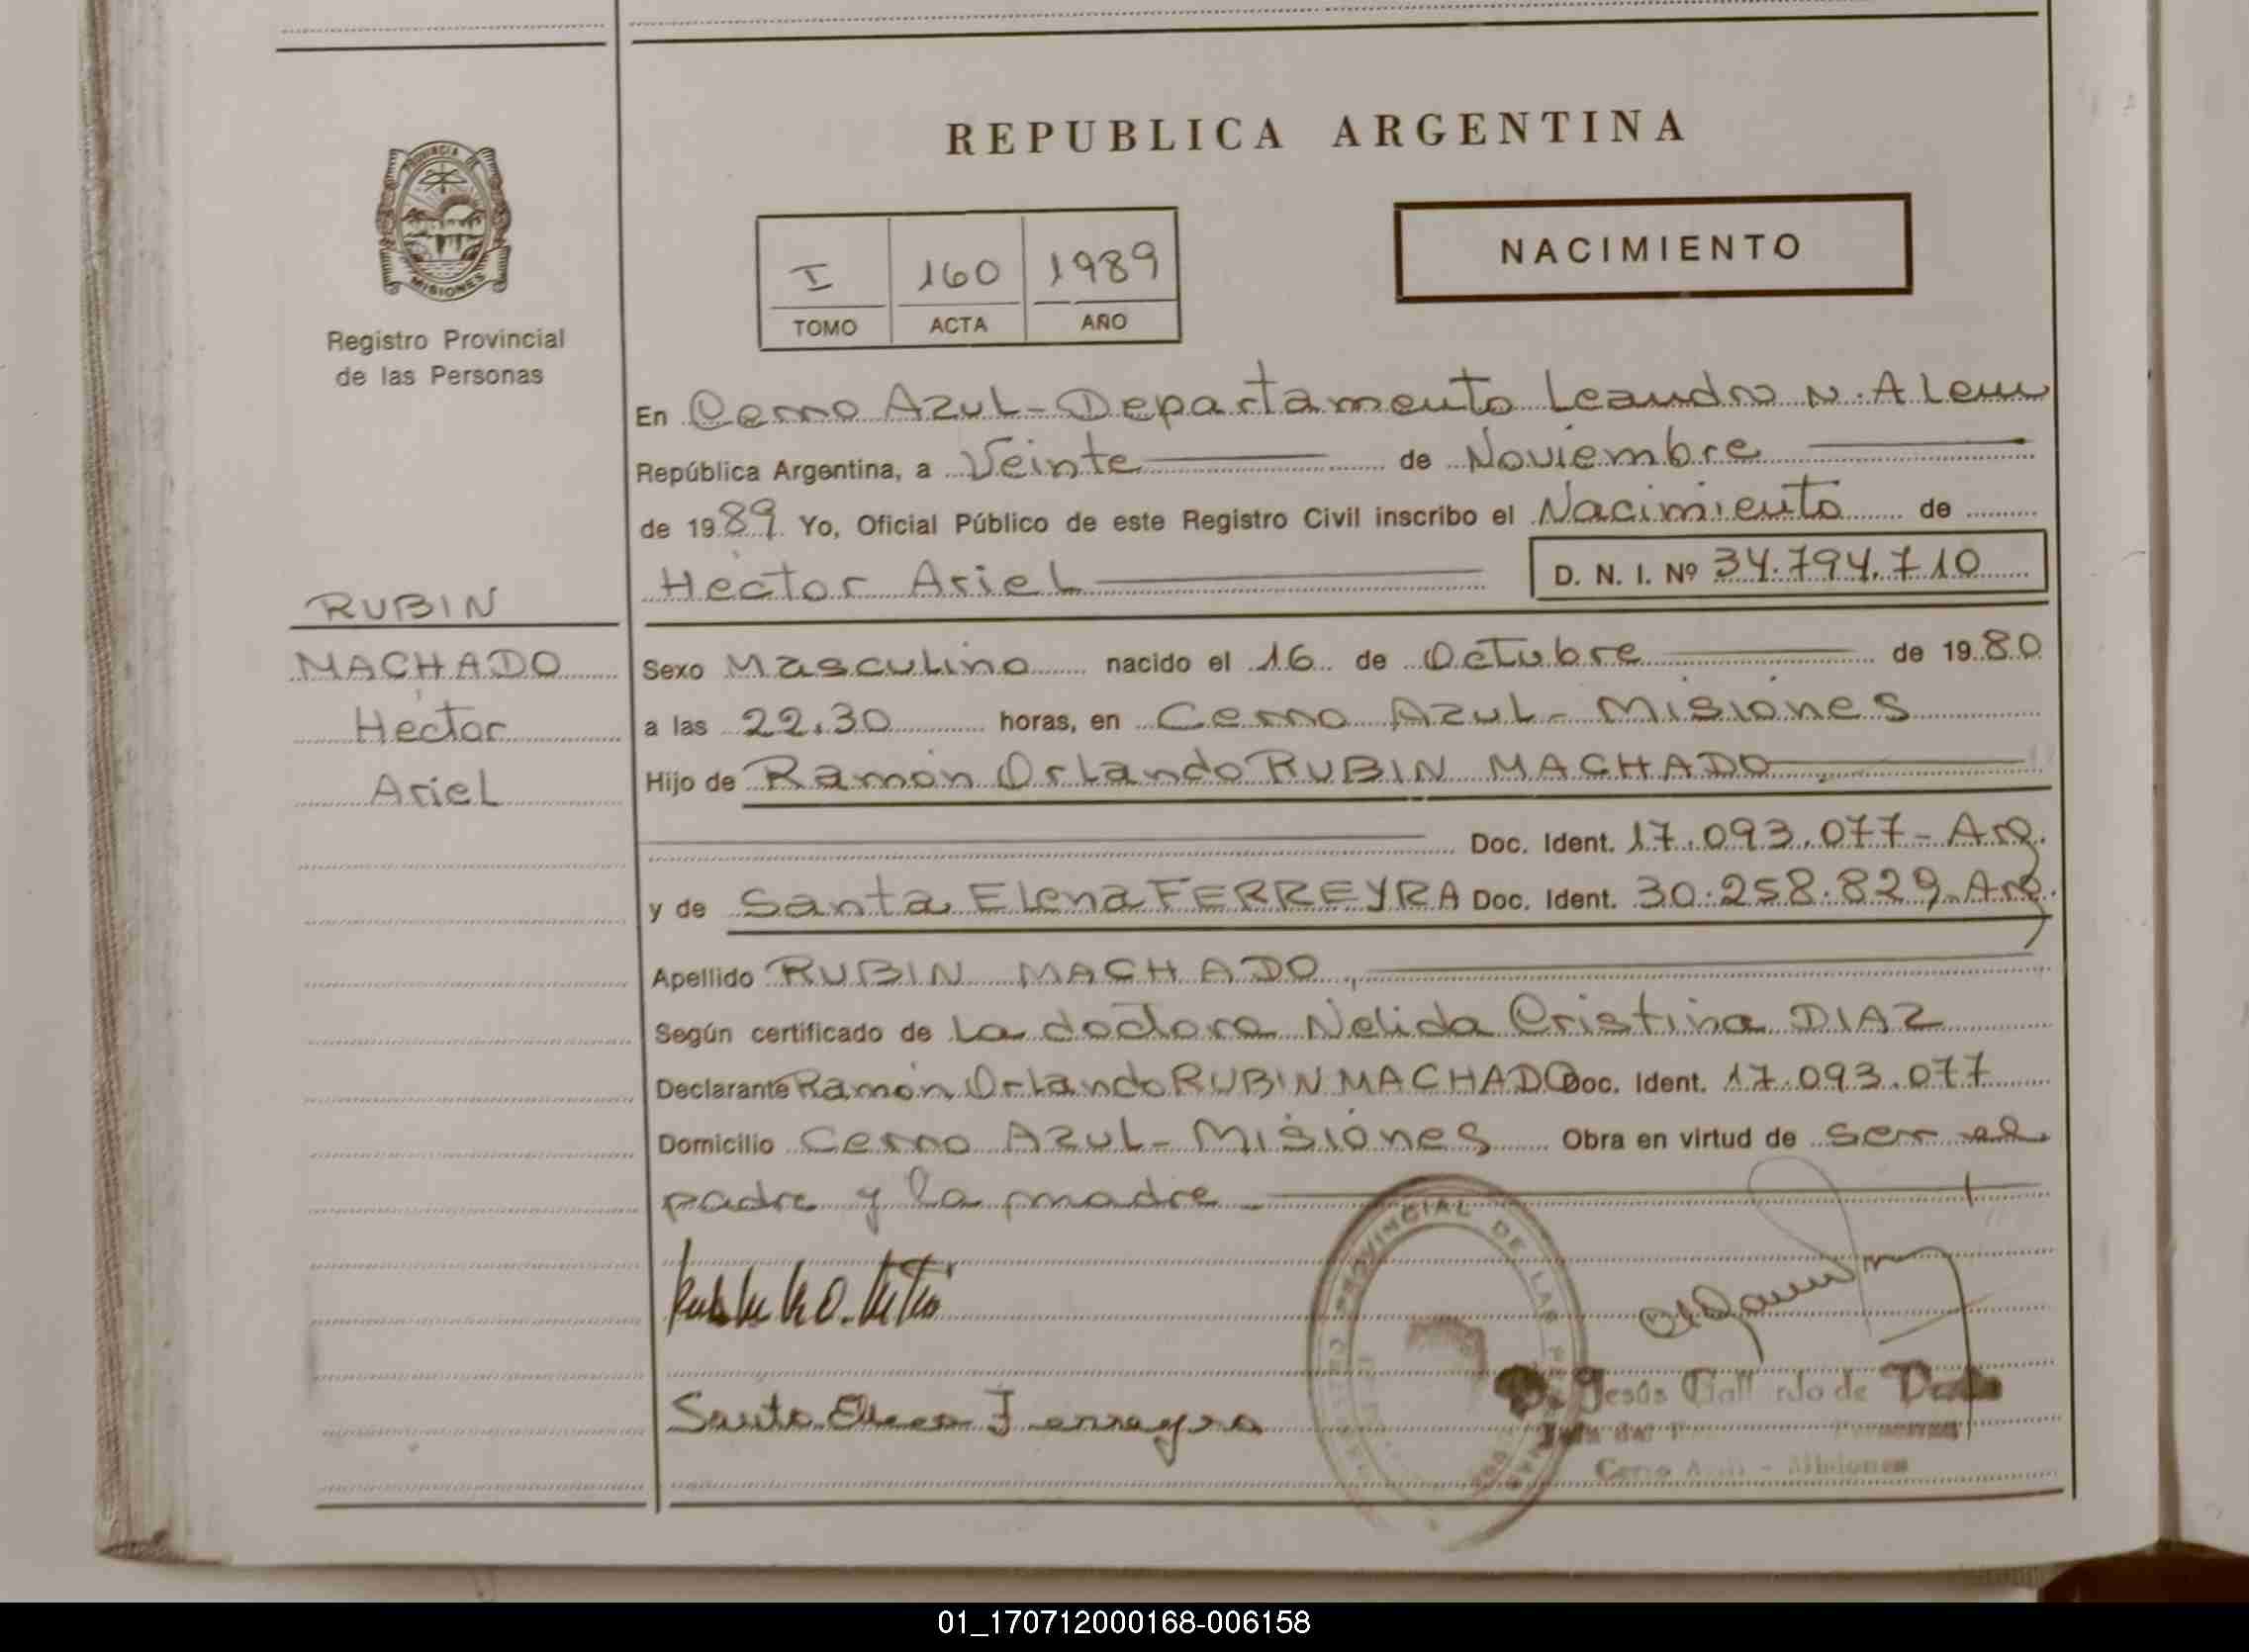 REPUBLICA ARGENTINA
PROVINCIA DE
MISIONES
Registro Provincial
de las Personas
I 160 1989
TOMO ACTA AÑO
NACIMIENTO
En Cerro Azul - Departamento Leandro N. Alem
República Argentina, a Veinte de Noviembre
de 1989 Yo, Oficial Público de este Registro Civil inscribo el Nacimiento de
Héctor Ariel D. N. I. Nº 34.794.710
RUBIN
MACHADO
Héctor
Ariel
Sexo Masculino nacido el 16 de Octubre de 1980
a las 22.30 horas, en Cerro Azul - Misiones
Hijo de Ramón Orlando RUBIN MACHADO
Doc. Ident. 17.093.077 - Arg.
y de Santa Elena FERREYRA Doc. Ident. 30.258.829 - Arg.
Apellido RUBIN MACHADO
Según certificado de la doctora Nelida Cristina DIAZ
Declarante Ramón Orlando RUBIN MACHADO Doc. Ident. 17.093.077
Domicilio Cerro Azul - Misiones Obra en virtud de ser el
padre y la madre
PROVINCIAL DE LAS
Santa Elena Ferreyra
Jesús de
Cerro - Misiones
01_170712000168-006158